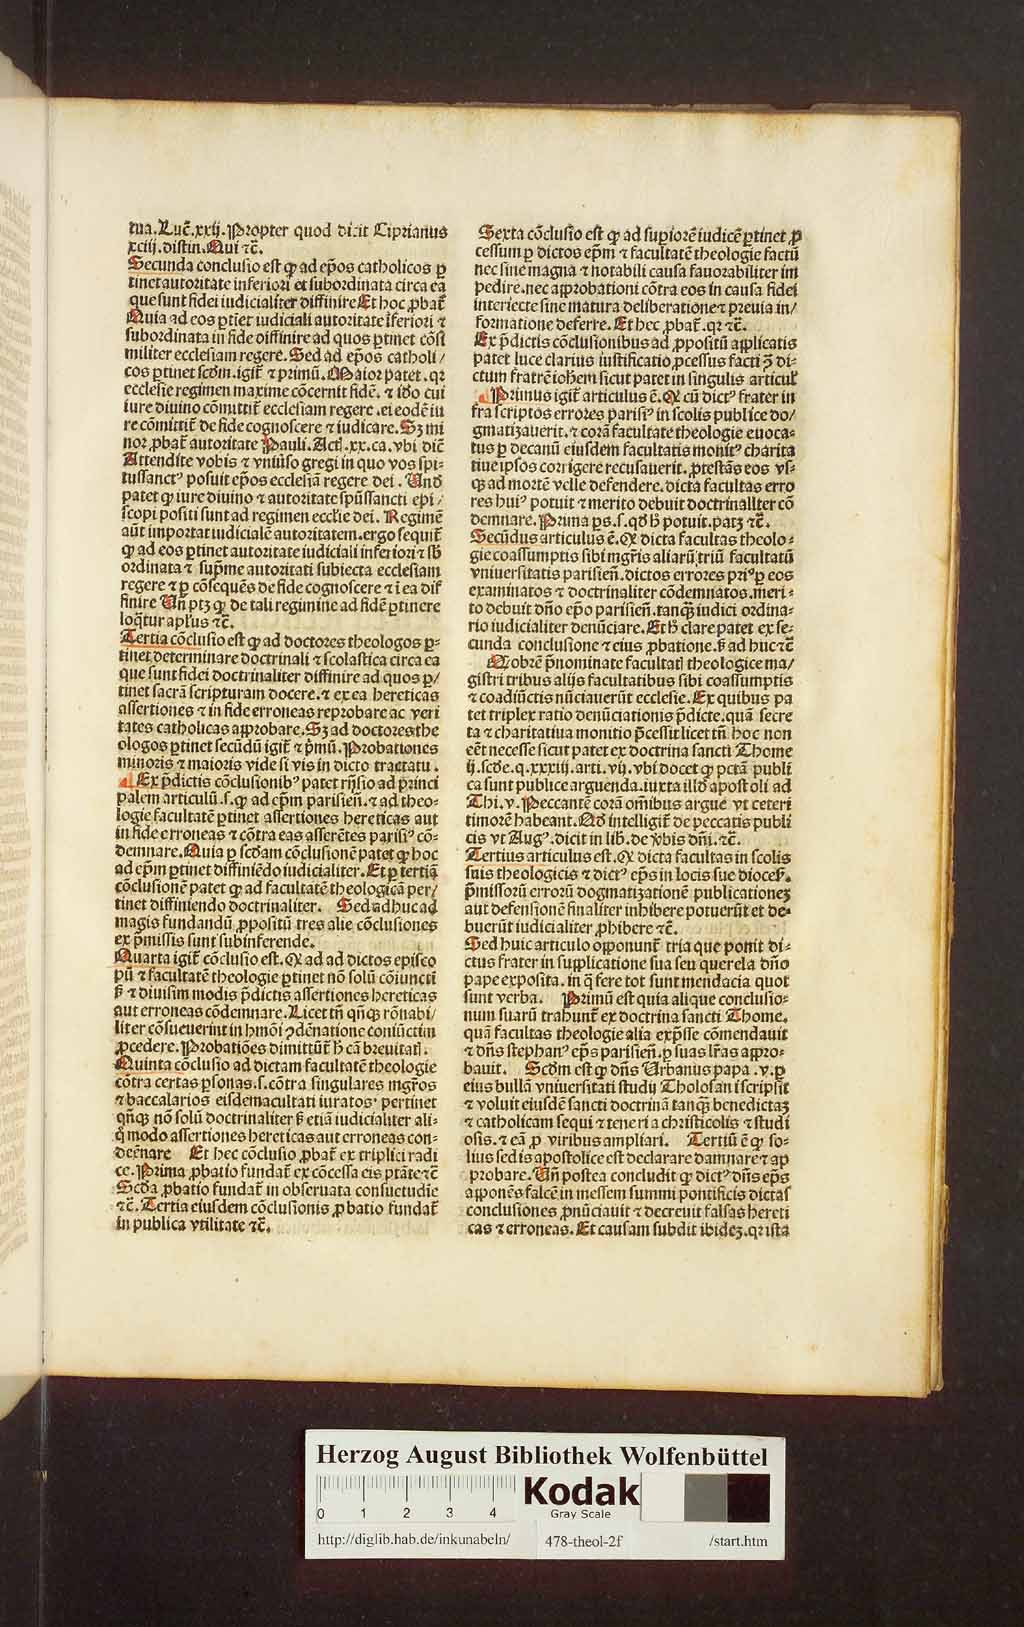 tua. Luc̄. xxij. Propter quod dicit Ciprianus
xciij. distin. Qui ⁊c̄.
Secunda conclusio est ꝙ ad ep̄os catholicos ꝑ
tinet autoritate inferiori et subordinata circa ea
que sunt fidei iudicialiter diffinire Et hoc ꝓbat̄
Quia ad eos ꝑtiet iudiciali autoritate īferiori ⁊
subordinata in fide diffinire ad quos ꝑtinet cōsi
militer ecclesiam regere. Sed ad ep̄os catholi/
cos ꝑtinet scd̄m. igit̄ ⁊ primū. Maior patet. qr
ecclesie regimen maxime cōcernit fidē. ⁊ iđo cui
iure diuino cōmittit̄ ecclesiam regere. ei eodē iu
re cōmittit̄ de fide cognoscere ⁊ iudicare. Sꝫ mi
nor ꝓbat̄ autoritate Pauli. Act̄. xx. ca. vbi diē
Attendite vobis ⁊ vniūso gregi in quo vos spi-
tussanctꝰ posuit ep̄os ecclesiā regere dei. Vnđ
patet ꝙ iure diuino ⁊ autoritate sp̄ussancti epi/
scopi positi sunt ad regimen eccl̄ie dei. Regimē
aūt importat iudicialē autoritatem. ergo sequit̄
ꝙ ad eos ꝑtinet autoritate iudiciali inferiori ⁊ sb̄
ordinata ⁊ sup̄me autoritati subiecta ecclesiam
regere ⁊ ꝑ cōsequēs de fide cognoscere ⁊ ī ea dif
finire Vn̄ ptꝫ ꝙ de tali regimine ad fidē ꝑtinere
loq̄tur apl̄us ⁊c̄.
Tertia cōclusio est ꝙ ad doctores theologos ꝑ-
tinet determinare doctrinali ⁊ scolastica circa ea
que sunt fidei doctrinaliter diffinire ad quos ꝑ/
tinet sacrā scripturam docere. ⁊ ex ea hereticas
assertiones ⁊ in fide erroneas reprobare ac veri
tates catholicas approbare. Sꝫ ad doctores the
ologos ꝑtinet secūdū igit̄ ⁊ p̄mū. Probationes
minoris ⁊ maioris vide si vis in dicto tractatu.
Ex p̄dictis cōclusionibꝰ patet rn̄sio ad princi
palem articulū. s. ꝙ ad ep̄m parisien̄. ⁊ ad theo-
logie facultatē ꝑtinet assertiones hereticas aut
in fide erroneas ⁊ cōtra eas asserētes parisiꝰ cō-
demnare. Quia ꝑ scđam cōclusionē patet ꝙ hoc
ad ep̄m ꝑtinet diffiniēdo iudicialiter. Et ꝑ tertiā
cōclusionē patet ꝙ ad facultatē theologicā per/
tinet diffiniendo doctrinaliter. Sed adhuc ad
magis fundandū ꝓpositū tres alie cōclusiones
ex p̄missis sunt subinferende.
Quarta igit̄ cōclusio est. Ꝙ ad ad dictos episco
pū ⁊ facultatē theologie ꝑtinet nō solū cōiuncti
ꝭ ⁊ diuisim modis p̄dictis assertiones hereticas
aut erroneas cōdemnare. Licet tn̄ qn̄qꝫ rōnabi/
liter cōsueuerint in hmōi ꝯdēnatione coniūctim
ꝓcedere. Probatiōes dimittūt̄ ħ cā breuitati.
Quinta cōclusio ad dictam facultatē theologie
cōtra certas ꝑsonas. s. cōtra singulares mgr̄os
⁊ baccalarios eisdemacultati iuratos. pertinet
qn̄qꝫ nō solū doctrinaliter ꝭ etiā iudicialiter ali-
q̊ modo assertiones hereticas aut erroneas con-
dēnare Et hec cōclusio ꝓbat̄ ex triplici radi
ce. Prima ꝓbatio fundat̄ ex cōcessa eis ptāte ⁊c̄
Scđa ꝓbatio fundat̄ in obseruata consuetudīe
⁊c̄. Tertia eiusdem cōclusionis ꝓbatio fundat̄
in publica vtilitate ⁊c̄.
Sexta cōclusio est ꝙ ad superiorē iudicē ꝑtinet ꝓ
cessum ꝑ dictos ep̄m ⁊ facultatē theologie factū
nec sine magna ⁊ notabili causa fauorabiliter im
pedire. nec approbationi cōtra eos in causa fidei
interiecte sine matura deliberatione ⁊ preuia in/
formatione deferre. Et hec ꝓbat̄. qr ⁊c̄.
Ex p̄dictis cōclusionibus ad ꝓpositū applicatis
patet luce clarius iustificatio ꝓcessus facti ꝯ̄ di-
ctum fratrē ioħem sicut patet in singulis articul̄
Primus igit̄ articulus ē. Ꝙ cū dictꝰ frater in
fra scriptos errores parisiꝰ in scolis publice do/
gmatizauerit. ⁊ corā facultate theologie euoca-
tus ꝑ decanū eiusdem facultatis monitꝰ charita
tiue ipsos corrigere recusauerit. ꝓtestās eos vs-
qꝫ ad mortē velle defendere. dicta facultas erro
res huiꝰ potuit ⁊ merito debuit doctrinaliter cō
demnare. Prima ps. s. qđ ħ potuit. patꝫ ⁊c̄.
Secūdus articulus ē. Ꝙ dicta facultas theolo-
gie coassumptis sibi mgr̄is aliarū triū facultatū
vniuersitatis parisien̄. dictos errores priꝰ ꝑ eos
examinatos ⁊ doctrinaliter cōdemnatos. meri-
to debuit dn̄o ep̄o parisien̄. tanqꝫ iudici ordina-
rio iudicialiter denūciare. Et ħ clare patet ex se-
cunda conclusione ⁊ eius ꝓbatione. ꝭ ad huc ⁊c̄
Q obrē p̄nominate facultati theologice ma/
gistri tribus alijs facultatibus sibi coassumptis
⁊ coadiūctis nūciauerūt ecclesie. Ex quibus pa
tet triplex ratio denūciationis p̄dicte. quā secre
ta ⁊ charitatiua monitio p̄cessit licet tn̄ hoc non
eēt necesse sicut patet ex doctrina sancti Thome
ij. scđe. q. xxxiij. arti. vij. vbi docet ꝙ pctā publi
ca sunt publice arguenda. iuxta illđ apostoli ad
Thi. v. Peccantē corā om̄ibus argue vt ceteri
timorē habeant. Qđ intelligit̄ de peccatis publi
cis vt Augꝰ. dicit in lib. de v̄bis dn̄i. ⁊c̄.
Tertius articulus est. Ꝙ dicta facultas in scolis
suis theologicis ⁊ dictꝰ ep̄s in locis sue dioceẜ.
p̄missorū errorū dogmatizationē publicationeꝫ
aut defensionē finaliter inhibere potuerūt et de-
buerūt iudicialiter ꝓhibere ⁊c̄.
Sed huic articulo opponunt̄ tria que ponit di-
ctus frater in supplicatione sua seu querela dn̄o
pape exposita. in q̄ fere tot sunt mendacia quot
sunt verba. Primū est quia alique conclusio-
num suarū trahunt̄ ex doctrina sancti Thome.
quā facultas theologie alia exp̄sse cōmendauit
⁊ dn̄s stephanꝰ ep̄s parisien̄. ꝑ suas l̄ras appro-
bauit. Scđm est ꝙ dn̄s Urbanus papa. v. ꝑ
eius bullā vniuersitati studij Tholosan̄ scripsit
⁊ voluit eiusdē sancti doctrinā tanqꝫ benedictaꝫ
⁊ catholicam sequi ⁊ teneri a christicolis ⁊ studi
osis. ⁊ eā ꝓ viribus ampliari. Tertiū ē ꝙ so-
lius sedis apostolice est declarare damnare ⁊ ap
probare. Vn̄ postea concludit ꝙ dictꝰ dn̄s ep̄s
apponēs falcē in messem summi pontificis dictas
conclusiones ꝓnūciauit ⁊ decreuit falsas hereti
cas ⁊ erroneas. Et causam subdit ibideꝫ. qr ista
Herzog August Bibliothek Wolfenbüttel
0 1 2 3 4
Kodak
Gray Scale
http://diglib.hab.de/inkunabeln/ 478-theol-2f /start.htm